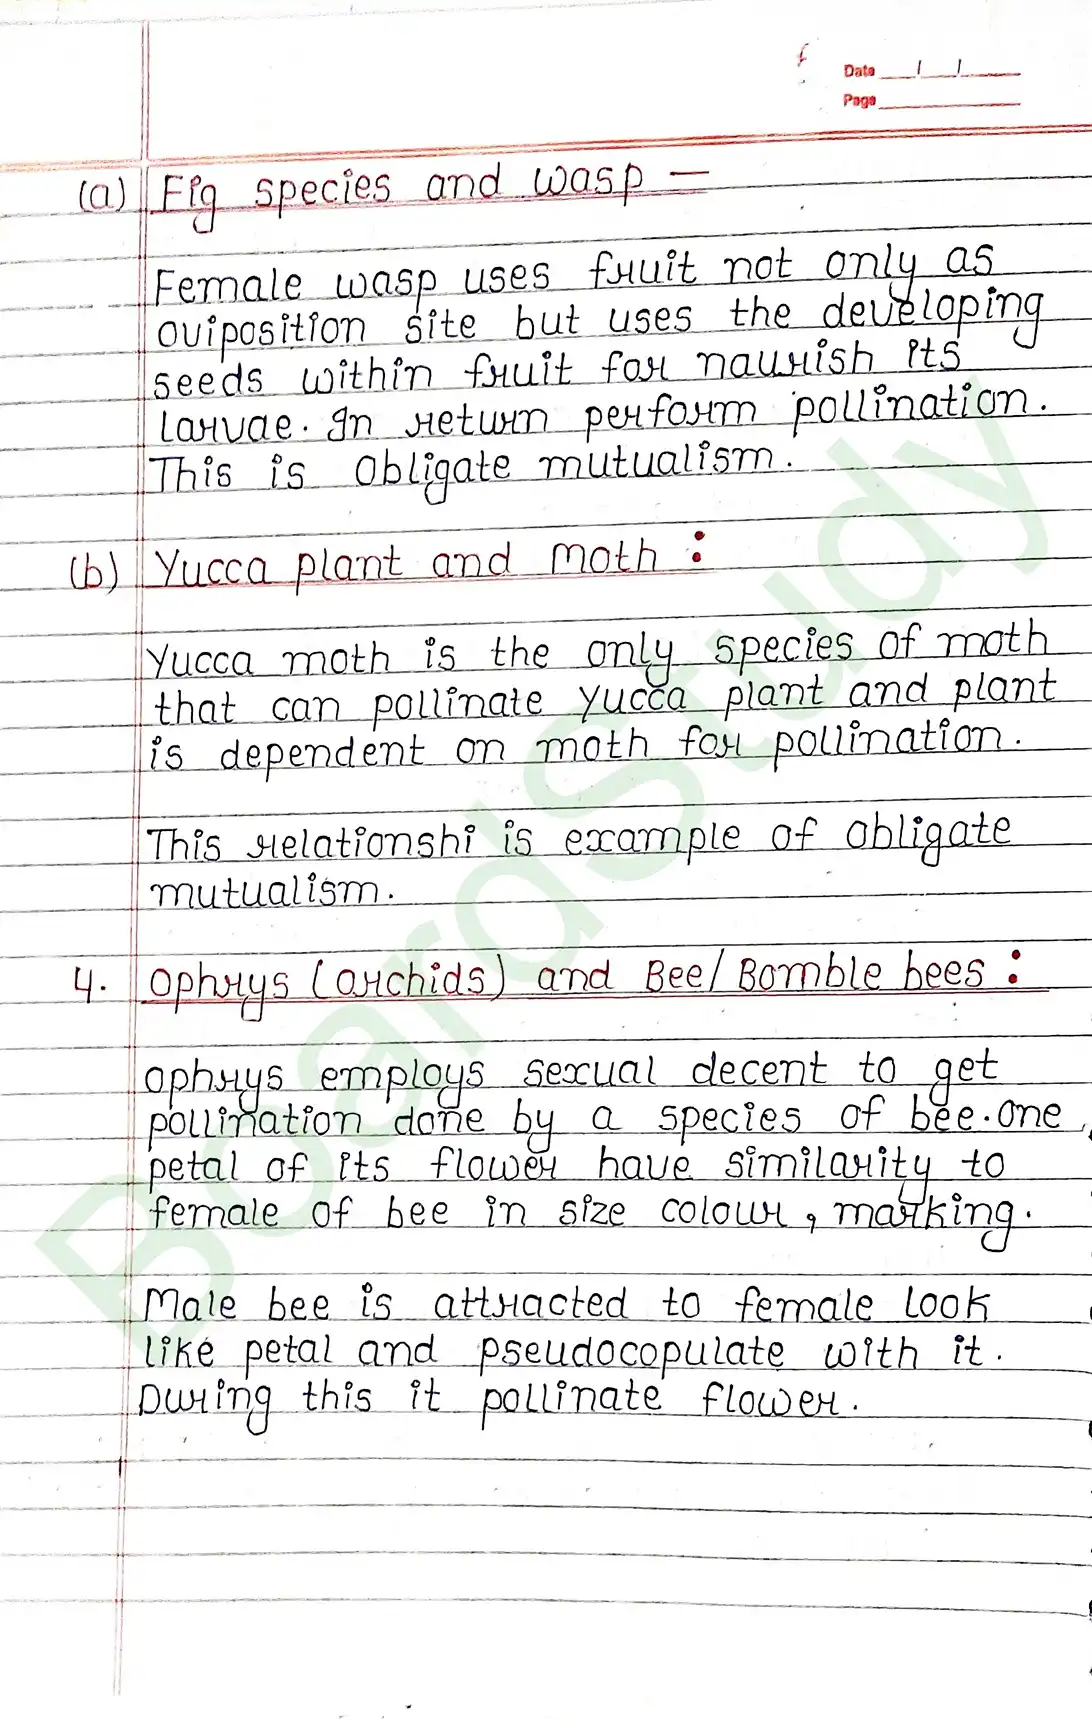 Date __/__/____
Page ________
(a) Fig species and wasp —
Female wasp uses fruit not only as
oviposition site but uses the developing
seeds within fruit for naurish its
larvae. In return perform pollination.
This is Obligate mutualism.
(b) Yucca plant and moth :
Yucca moth is the only species of moth
that can pollinate yucca plant and plant
is dependent on moth for pollination.
This relationshi is example of obligate
mutualism.
4. Ophrys (orchids) and Bee/ Bomble bees :
Ophrys employs sexual decent to get
pollination done by a species of bee. One
petal of its flower have similarity to
female of bee in size colour, marking.
Male bee is attracted to female look
like petal and pseudocopulate with it.
During this it pollinate flower.
BoardStudy